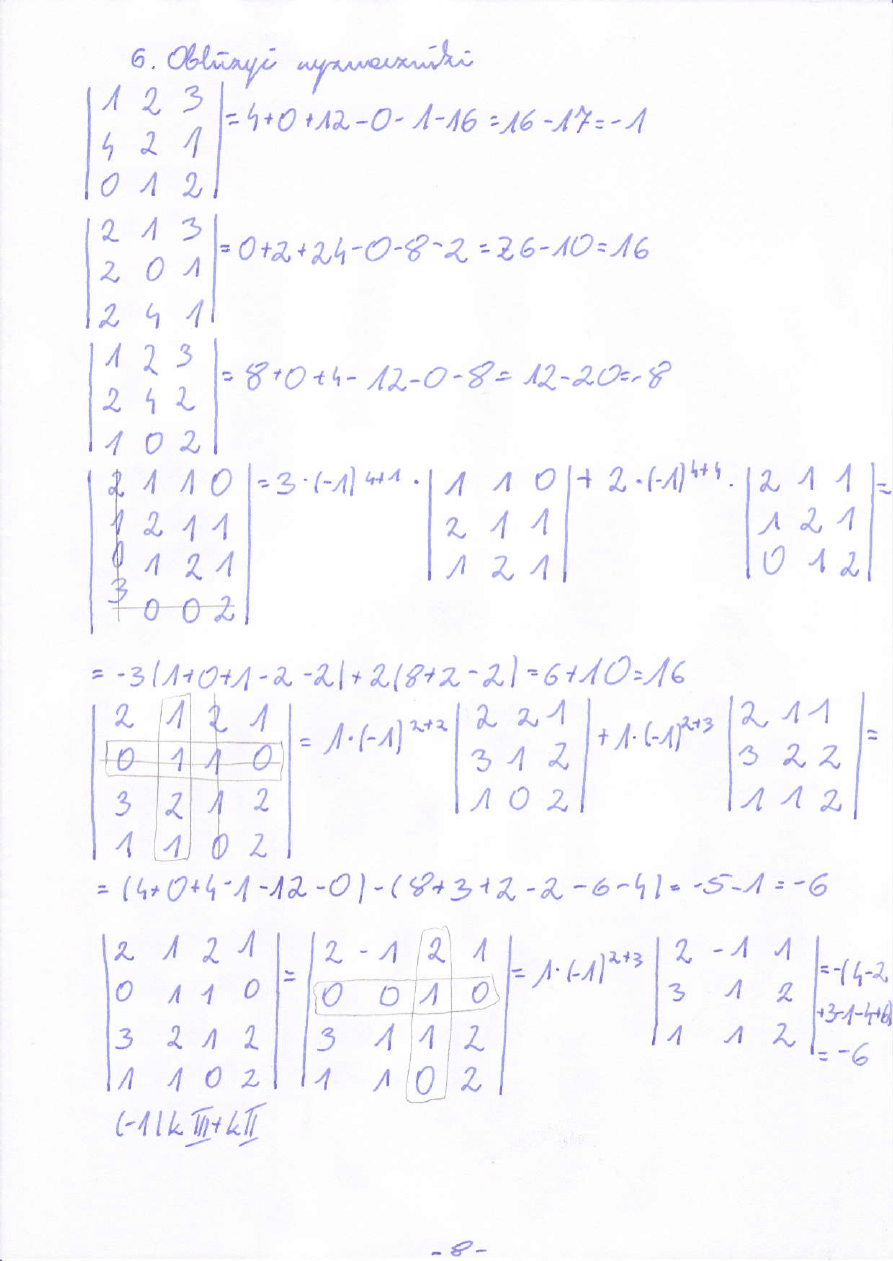 6. Obliczyć wyznaczniki
|1 2 3| = 4+0+12-0-1-16 = 16-17 = -1
|4 2 1|
|0 1 2|
|2 1 3| = 0+2+24-0-8-2 = 26-10 = 16
|2 0 1|
|2 4 1|
|1 2 3| = 8+0+4-12-0-8 = 12-20 = -8
|2 4 2|
|1 0 2|
|2 1 1 0| = 3·(-1)^4+1 · |1 1 0| + 2·(-1)^4+4 · |2 1 1| =
|1 2 1 1| |2 1 1| |1 2 1|
|0 1 2 1| |1 2 1| |0 1 2|
|3 0 0 2|
= -3(1+0+1-2-2)+2(8+2-2) = 6+10 = 16
|2 1 2 1| = 1·(-1)^2+2 |2 2 1| + 1·(-1)^2+3 |2 1 1| =
|0 1 1 0| |3 1 2| |3 2 2|
|3 2 1 2| |1 0 2| |1 1 2|
|1 1 0 2|
= (4+0+4-1-12-0)-(8+3+2-2-6-4) = -5-1 = -6
|2 1 2 1| = |2 -1 2 1| = 1·(-1)^2+3 |2 -1 1| = -(4-2
|0 1 1 0| |0 0 1 0| |3 1 2| +3-1-4+6)
|3 2 1 2| |3 1 1 2| |1 1 2| = -6
|1 1 0 2| |1 1 0 2|
(-1)k III+k II
-8-